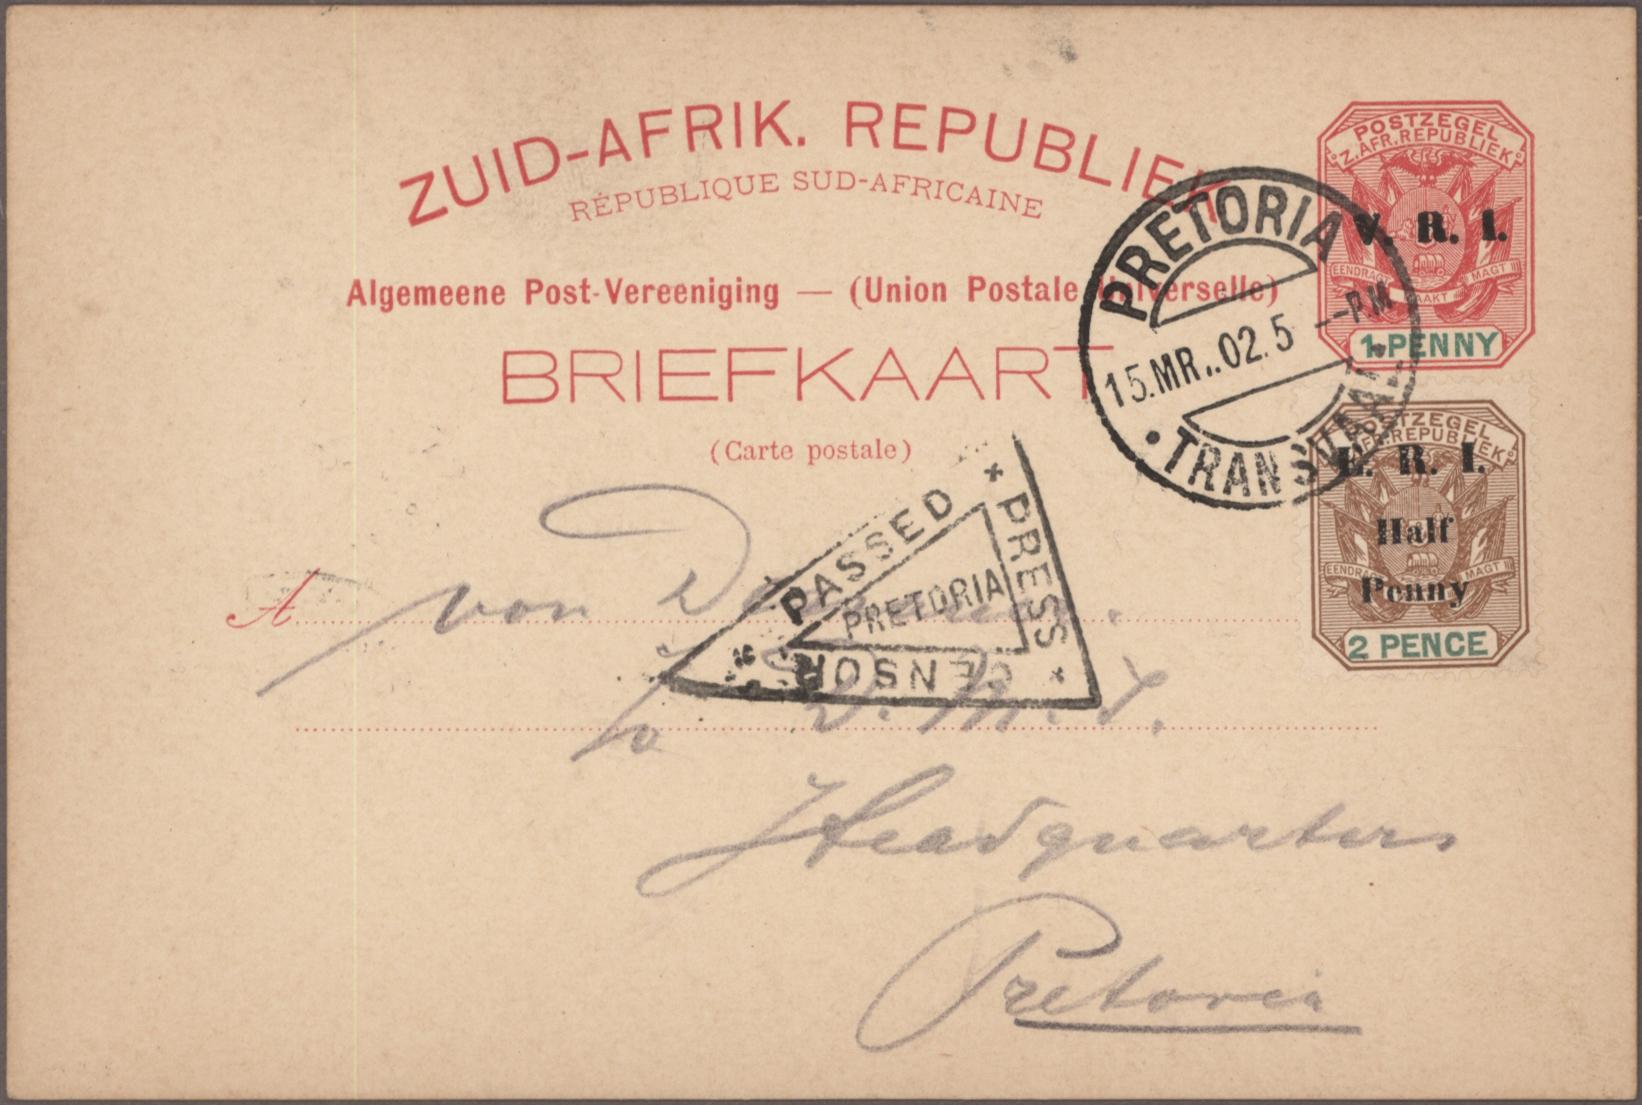 ZUID-AFRIK. REPUBLIEK
RÉPUBLIQUE SUD-AFRICAINE
Algemeene Post-Vereeniging — (Union Postale Universelle)
BRIEFKAART
(Carte postale)
POSTZEGEL
Z.AFR.REPUBLIEK
V. R. I.
EENDRAGT MAAKT MAGT
1 PENNY
PRETORIA
15.MR..02.5 --P.M
TRANSVAAL
POSTZEGEL
Z.AFR.REPUBLIEK
E. R. I.
Half
Penny
EENDRAGT MAGT
2 PENCE
PASSED
PRESS
CENSOR
PRETORIA
A von
D. M. I.
Headquarters
Pretoria